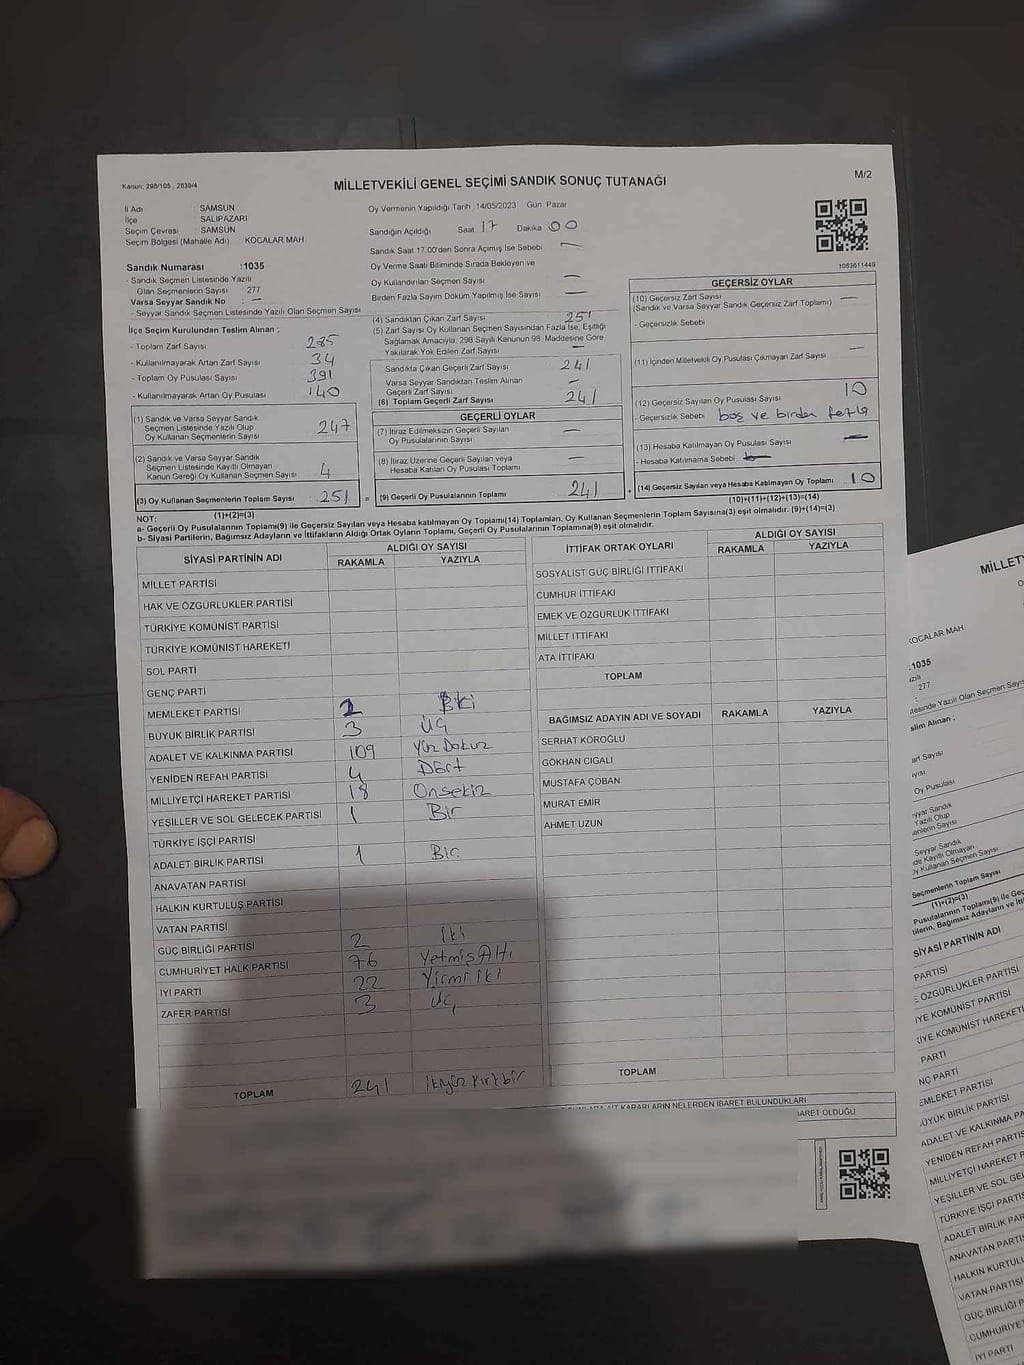 Kanun: 298/105 , 2839/4
MİLLETVEKİLİ GENEL SEÇİMİ SANDIK SONUÇ TUTANAĞI
M/2
İl Adı : SAMSUN
İlçe : SALIPAZARI
Seçim Çevresi : SAMSUN
Seçim Bölgesi (Mahalle Adı) : KOCALAR MAH
Sandık Numarası :1035
- Sandık Seçmen Listesinde Yazılı
Olan Seçmenlerin Sayısı 277
Varsa Seyyar Sandık No : —
- Seyyar Sandık Seçmen Listesinde Yazılı Olan Seçmen Sayısı
İlçe Seçim Kurulundan Teslim Alınan ;
- Toplam Zarf Sayısı 285
- Kullanılmayarak Artan Zarf Sayısı 34
- Toplam Oy Pusulası Sayısı 391
- Kullanılmayarak Artan Oy Pusulası 140
(1) Sandık ve Varsa Seyyar Sandık
Seçmen Listesinde Yazılı Olup
Oy Kullanan Seçmenlerin Sayısı 247
(2) Sandık ve Varsa Seyyar Sandık
Seçmen Listesinde Kayıtlı Olmayan
Kanun Gereği Oy Kullanan Seçmen Sayısı 4
(3) Oy Kullanan Seçmenlerin Toplam Sayısı 251
(1)+(2)=(3)
Oy Vermenin Yapıldığı Tarih 14/05/2023 Gün: Pazar
Sandığın Açıldığı Saat 17 Dakika 00
Sandık Saat 17.00'den Sonra Açımış İse Sebebi —
Oy Verme Saati Bitiminde Sırada Bekleyen ve
Oy Kullandırılan Seçmen Sayısı —
Birden Fazla Sayım Döküm Yapılmış İse Sayısı —
(4) Sandıktan Çıkan Zarf Sayısı 251
(5) Zarf Sayısı Oy Kullanan Seçmen Sayısından Fazla İse, Eşitliği
Sağlamak Amacıyla, 298 Sayılı Kanunun 98. Maddesine Göre
Yakılarak Yok Edilen Zarf Sayısı —
Sandıkta Çıkan Geçerli Zarf Sayısı 241
Varsa Seyyar Sandıktan Teslim Alınan
Geçerli Zarf Sayısı —
(6) Toplam Geçerli Zarf Sayısı 241
GEÇERLİ OYLAR
(7) İtiraz Edilmeksizin Geçerli Sayılan
Oy Pusulalarının Sayısı —
(8) İtiraz Üzerine Geçerli Sayılan veya
Hesaba Katılan Oy Pusulası Toplamı —
= (9) Geçerli Oy Pusulalarının Toplamı 241 +
1063611449
GEÇERSİZ OYLAR
(10) Geçersiz Zarf Sayısı —
(Sandık ve Varsa Seyyar Sandık Geçersiz Zarf Toplamı)
- Geçersizlik Sebebi
(11) İçinden Milletvekili Oy Pusulası Çıkmayan Zarf Sayısı —
(12) Geçersiz Sayılan Oy Pusulası Sayısı 10
- Geçersizlik Sebebi boş ve birden fazla
(13) Hesaba Katılmayan Oy Pusulası Sayısı —
- Hesaba Katılmama Sebebi —
(14) Geçersiz Sayılan veya Hesaba Katılmayan Oy Toplamı 10
(10)+(11)+(12)+(13)=(14)
NOT:
a- Geçerli Oy Pusulalarının Toplamı(9) ile Geçersiz Sayılan veya Hesaba katılmayan Oy Toplamı(14) Toplamları, Oy Kullanan Seçmenlerin Toplam Sayısına(3) eşit olmalıdır. (9)+(14)=(3)
b- Siyasi Partilerin, Bağımsız Adayların ve İttifakların Aldığı Ortak Oyların Toplamı, Geçerli Oy Pusulalarının Toplamına(9) eşit olmalıdır.
SİYASİ PARTİNİN ADI
ALDIĞI OY SAYISI
RAKAMLA YAZIYLA
MİLLET PARTİSİ
HAK VE ÖZGÜRLÜKLER PARTİSİ
TÜRKİYE KOMÜNİST PARTİSİ
TÜRKİYE KOMÜNİST HAREKETİ
SOL PARTİ
GENÇ PARTİ
MEMLEKET PARTİSİ 2 İki
BÜYÜK BİRLİK PARTİSİ 3 Üç
ADALET VE KALKINMA PARTİSİ 109 Yüz Dokuz
YENİDEN REFAH PARTİSİ 4 Dört
MİLLİYETÇİ HAREKET PARTİSİ 18 Onsekiz
YEŞİLLER VE SOL GELECEK PARTİSİ 1 Bir
TÜRKİYE İŞÇİ PARTİSİ
ADALET BİRLİK PARTİSİ 1 Bir
ANAVATAN PARTİSİ
HALKIN KURTULUŞ PARTİSİ
VATAN PARTİSİ
GÜÇ BİRLİĞİ PARTİSİ 2 İki
CUMHURİYET HALK PARTİSİ 76 Yetmiş Altı
İYİ PARTİ 22 Yirmi iki
ZAFER PARTİSİ 3 Üç
TOPLAM 241 İkiyüz kırkbir
İTTİFAK ORTAK OYLARI
ALDIĞI OY SAYISI
RAKAMLA YAZIYLA
SOSYALİST GÜÇ BİRLİĞİ İTTİFAKI
CUMHUR İTTİFAKI
EMEK VE ÖZGÜRLÜK İTTİFAKI
MİLLET İTTİFAKI
ATA İTTİFAKI
TOPLAM
BAĞIMSIZ ADAYIN ADI VE SOYADI RAKAMLA YAZIYLA
SERHAT KÖROĞLU
GÖKHAN CIGALI
MUSTAFA ÇOBAN
MURAT EMİR
AHMET UZUN
TOPLAM
KARARLARIN NELERDEN İBARET BULUNDUKLARI
İBARET OLDUĞU
MİLLETV
KOCALAR MAH
:1035
: 277
slim Alınan ;
arf Sayısı
Oy Pusulası
Seyyar Sandık
de Kayıtlı Olmayan
Oy Kullanan Seçmen Sayısı
Seçmenlerin Toplam Sayısı
(1)+(2)=(3)
Pusulalarının Toplamı(9) ile Geç
tilerin, Bağımsız Adayların ve İtt
SİYASİ PARTİNİN ADI
PARTİSİ
E ÖZGÜRLÜKLER PARTİSİ
İYE KOMÜNİST PARTİSİ
KİYE KOMÜNİST HAREKETİ
PARTİ
NÇ PARTİ
EMLEKET PARTİSİ
ÜYÜK BİRLİK PARTİSİ
ADALET VE KALKINMA PA
YENİDEN REFAH PARTİSİ
MİLLİYETÇİ HAREKET P
YEŞİLLER VE SOL GEL
TÜRKİYE İŞÇİ PARTİS
ADALET BİRLİK PAR
ANAVATAN PARTİS
HALKIN KURTULU
VATAN PARTİSİ
GÜÇ BİRLİĞİ P
CUMHURİYET
İYİ PARTİ